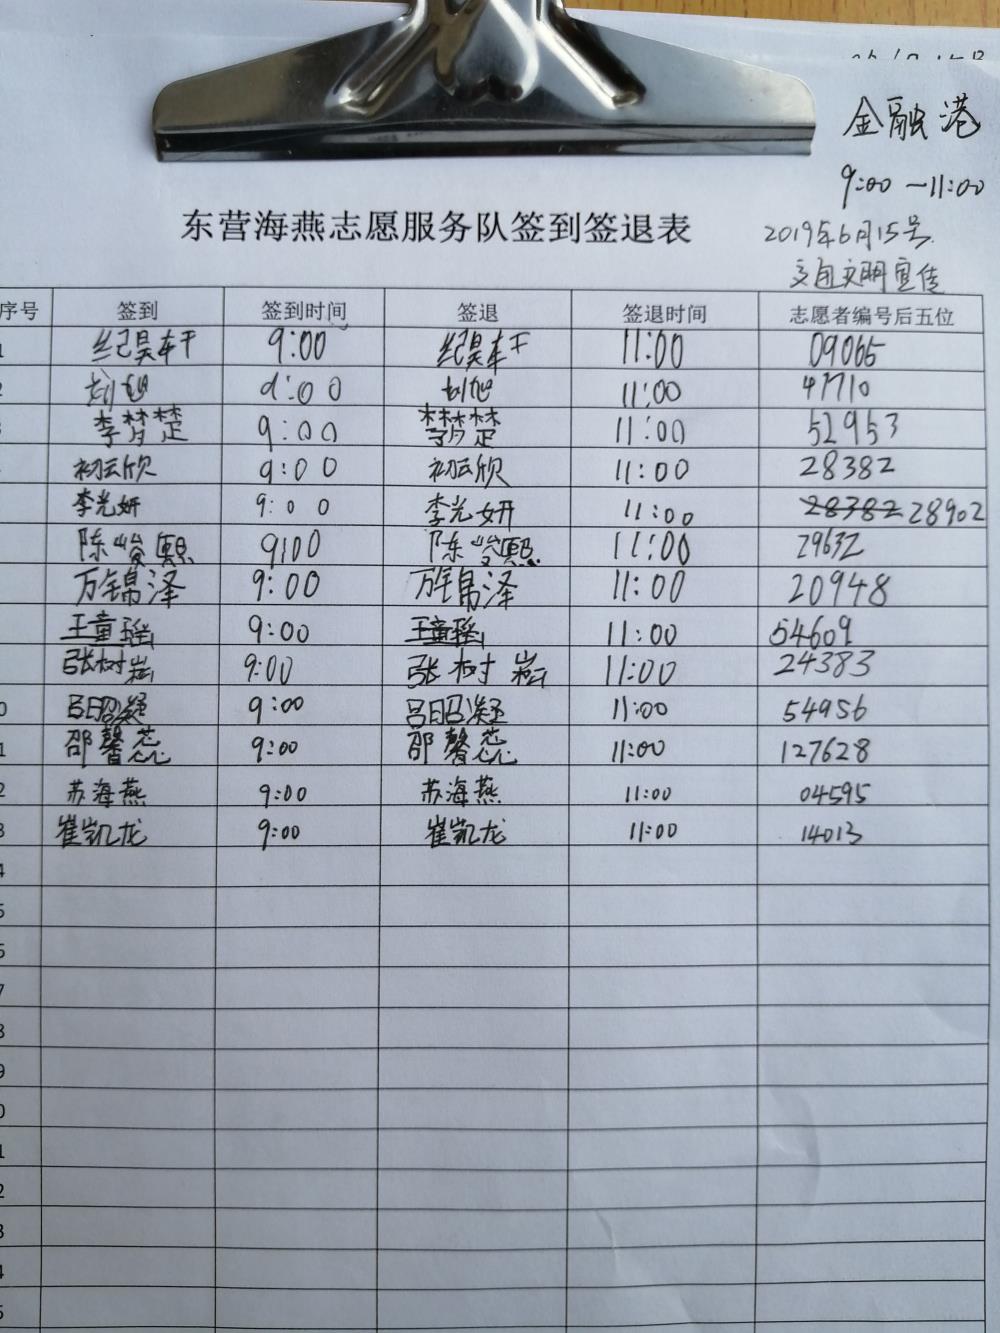 金融港
9:00—11:00
东营海燕志愿服务队签到签退表
2019年6月15号
交通文明宣传
序号 签到 签到时间 签退 签退时间 志愿者编号后五位
1 纪昊轩 9:00 纪昊轩 11:00 09065
2 刘旭 9:00 刘旭 11:00 47710
3 李梦楚 9:00 李梦楚 11:00 52953
初云欣 9:00 初云欣 11:00 28382
李光妍 9:00 李光妍 11:00 28382 28902
陈峻熙 9:00 陈峻熙 11:00 29632
万锦泽 9:00 万锦泽 11:00 20948
王童瑶 9:00 王童瑶 11:00 54609
张树崧 9:00 张树崧 11:00 24383
0 吕昭凝 9:00 吕昭凝 11:00 54956
1 邵馨蕊 9:00 邵馨蕊 11:00 127628
2 苏海燕 9:00 苏海燕 11:00 04595
3 崔凯龙 9:00 崔凯龙 11:00 14013
4
5
6
7
8
9
0
1
2
3
4
5